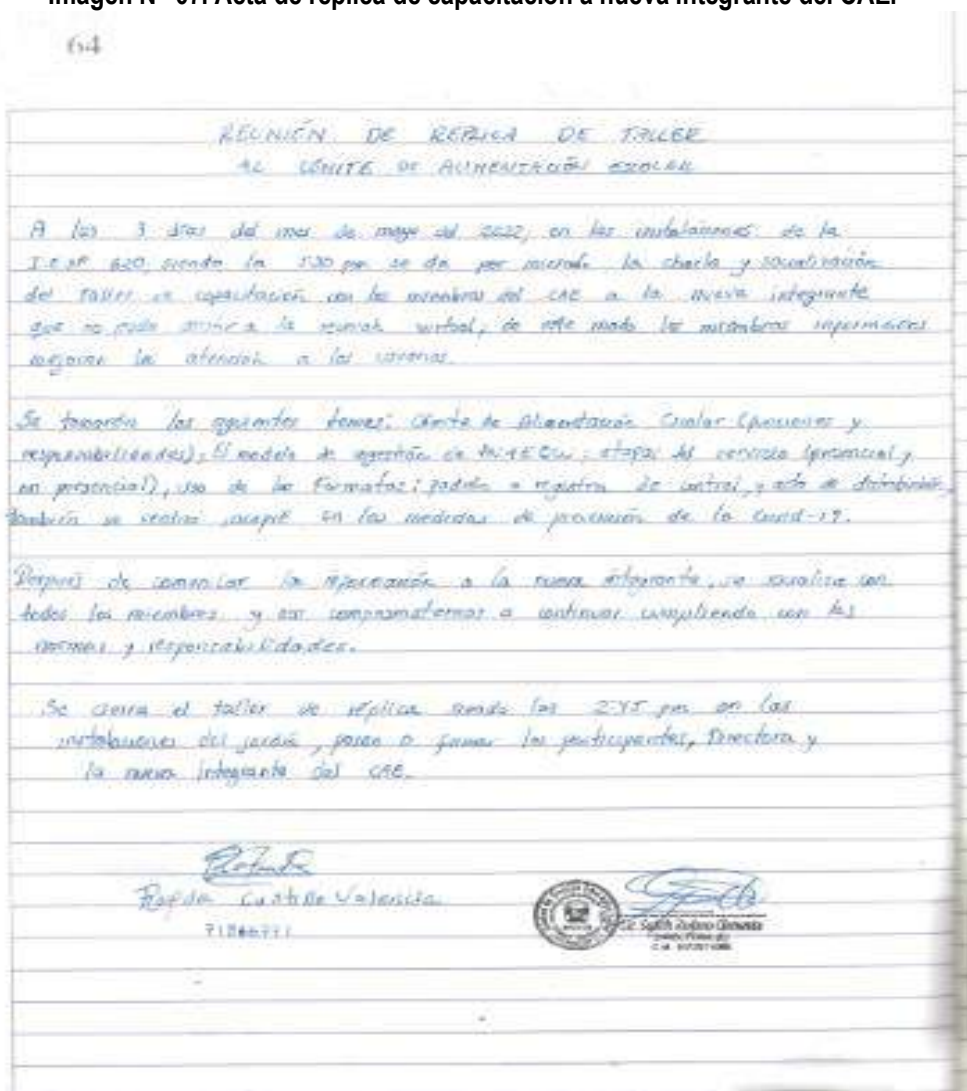 Imagen N° 07: Acta de réplica de capacitación a nueva integrante del CAE.
64
REUNIÓN DE REPLICA DE TALLER
AL COMITE DE ALIMENTACIÓN ESCOLAR
A los 3 días del mes de mayo del 2022, en las instalaciones de la
I.E.I N° 620, siendo la 1:30 pm se da por iniciado la charla y socialización
del taller de capacitación con los miembros del CAE a la nueva integrante
que no pudo a la reunión virtual, de este modo los miembros
mejoran la atención a los usuarios.
Se tomarón los siguientes temas: Comite de Alimentación Escolar (funciones y
responsabilidades), El modelo de gestión de, etapas del servicio (presencial y
no presencial), uso de los formatos: padrón o registro de control, y acta de distribución,
también se en las medidas de prevención de la Covid-19.
Después de comunicar la información a la nueva integrante, se socializa con
todos los miembros y así comprometernos a continuar cumpliendo con las
normas y responsabilidades.
Se cierra el taller de réplica siendo las 2:45 pm en las
instalaciones del jardín, pasan a firmar los participantes, Directora y
la nueva integrante del CAE.
Castillo Valencia
Lic.